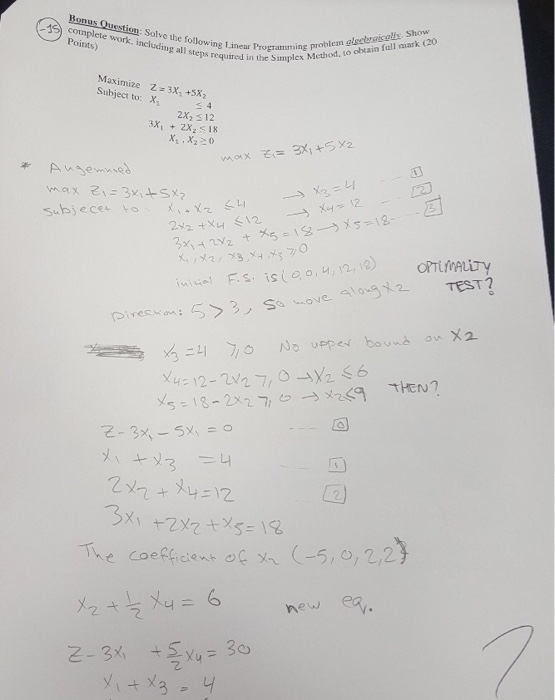 -15
Bonus Question: Solve the following Linear Programming problem algebraically. Show
complete work, including all steps required in the Simplex Method, to obtain full mark (20
Points)
Maximize Z = 3X₁ +5X₂
Subject to: X₁ ≤ 4
2X₂ ≤ 12
3X₁ + 2X₂ ≤ 18
X₁, X₂ ≥ 0
max Z = 3x₁ + 5x2
* Augemnted
max Z = 3x₁ + 5x₂
subjecet to: x₁ + x₂ ≤ 4 → x₃ = 4 [1]
2x₂ + x₄ ≤ 12 → x₄ = 12 [2]
3x₁ + 2x₂ + x₅ = 18 → x₅ = 18 [3]
x₁, x₂, x₃, x₄, x₅ ≥ 0
initial F.S. is (0, 0, 4, 12, 18)
OPTIMALITY
TEST?
Direction: 5 > 3, so move along x2
x₃ = 4 ≥ 0 No upper bound on x2
x₄ = 12 - 2x2 ≥ 0 → x₂ ≤ 6
x₅ = 18 - 2x2 ≥ 0 → x₂ ≤ 9 THEN?
Z - 3x₁ - 5x₁ = 0 --- [0]
x₁ + x₃ = 4 --- [1]
2x₂ + x₄ = 12 [2]
3x₁ + 2x₂ + x₅ = 18
The coefficient of x₂ (-5, 0, 2, 2)
x₂ + 1/2 x₄ = 6 new eq.
Z - 3x₁ + 5/2 x₄ = 30
x₁ + x₃ = 4
?